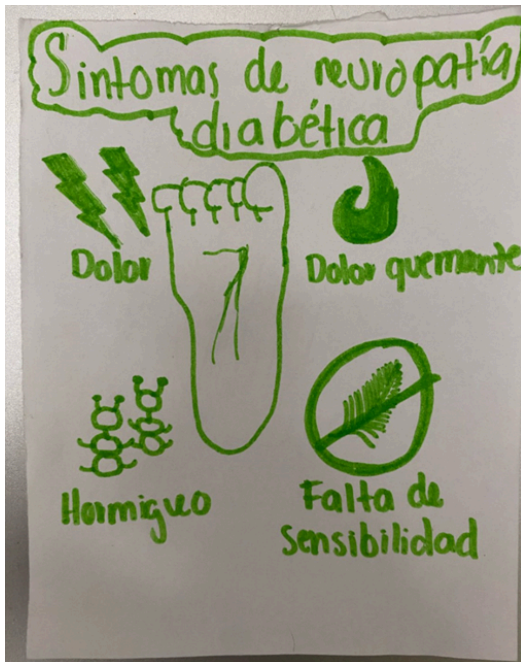 Síntomas de neuropatía
diabética
Dolor
Dolor quemante
Hormigueo
Falta de
sensibilidad